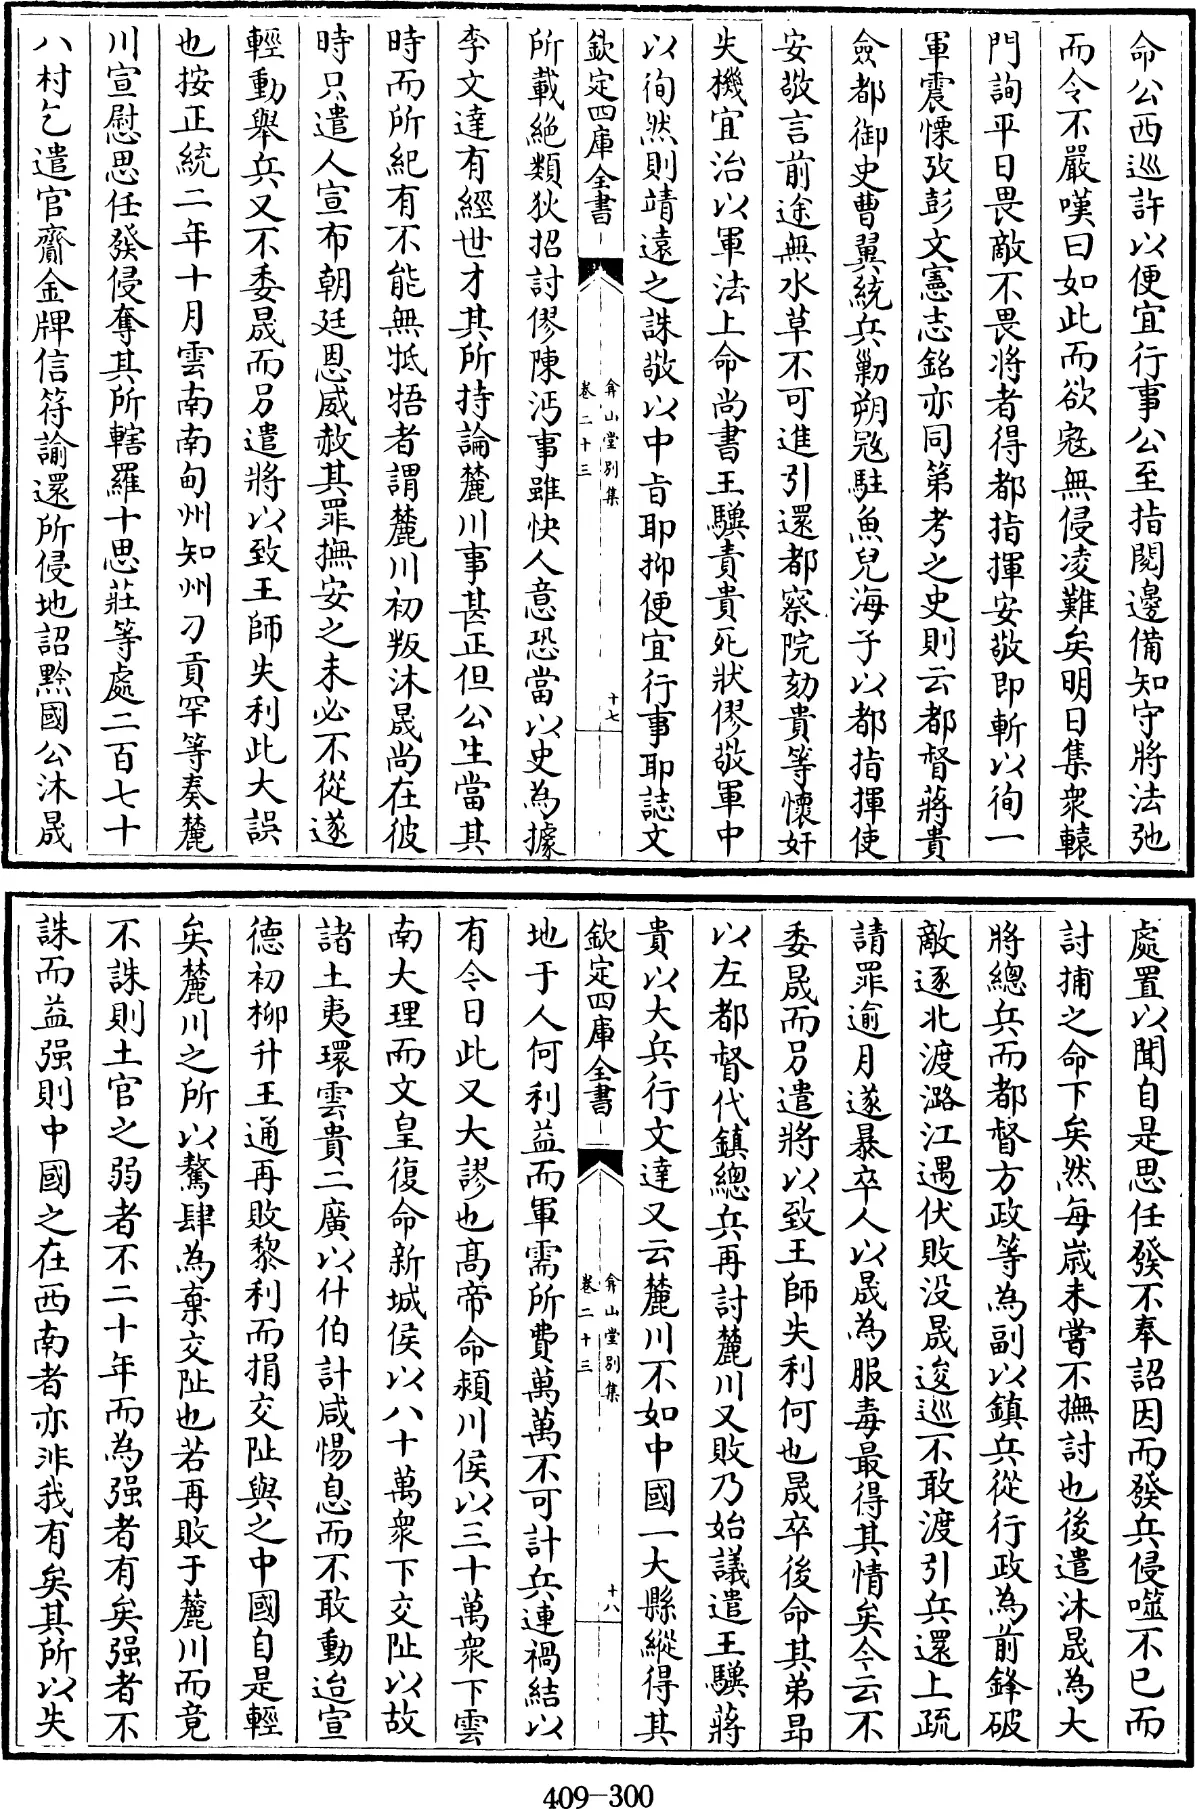 命公西巡許以便宜行事公至指閱邊備知守將法弛
而令不嚴嘆曰如此而欲宼無侵凌難矣明日集衆轅
門詢平日畏敵不畏將者得都指揮安敬即斬以徇一
軍震慄攷彭文憲志銘亦同第考之史則云都督蔣貴
僉都御史曹翼統兵勦朔宼駐魚兒海子以都指揮使
安敬言前途無水草不可進引還都察院劾貴等懷奸
失機宜治以軍法上命尚書王驥責貴死狀僇敬軍中
以徇然則靖遠之誅敬以中旨耶抑便宜行事耶誌文
欽定四庫全書
弇山堂別集
卷二十三
十七
所載絶類狄招討僇陳沔事雖快人意恐當以史為據
李文達有經世才其所持論麓川事甚正但公生當其
時而所紀有不能無牴牾者謂麓川初叛沐晟尚在彼
時只遣人宣布朝廷恩威赦其罪撫安之未必不從遂
輕動舉兵又不委晟而另遣將以致王師失利此大誤
也按正統二年十月雲南南甸州知州刀貢罕等奏麓
川宣慰思任發侵奪其所轄羅十思莊等處二百七十
八村乞遣官齎金牌信符諭還所侵地詔黔國公沐晟
處置以聞自是思任發不奉詔因而發兵侵噬不已而
討捕之命下矣然每嵗未嘗不撫討也後遣沐晟為大
將總兵而都督方政等為副以鎮兵從行政為前鋒破
敵逐北渡潞江遇伏敗没晟逡巡不敢渡引兵還上疏
請罪逾月遂暴卒人以晟為服毒最得其情矣今云不
委晟而另遣將以致王師失利何也晟卒後命其弟昂
以左都督代鎮總兵再討麓川又敗乃始議遣王驥蔣
貴以大兵行文達又云麓川不如中國一大縣縱得其
欽定四庫全書
弇山堂別集
卷二十三
十八
地于人何利益而軍需所費萬萬不可計兵連禍結以
有今日此又大謬也髙帝命潁川侯以三十萬衆下雲
南大理而文皇復命新城侯以八十萬衆下交阯以故
諸土夷環雲貴二廣以什伯計咸惕息而不敢動迨宣
德初柳升王通再敗黎利而捐交阯與之中國自是輕
矣麓川之所以驁肆為棄交阯也若再敗于麓川而竟
不誅則土官之弱者不二十年而為强者有矣强者不
誅而益强則中國之在西南者亦非我有矣其所以失
409-300